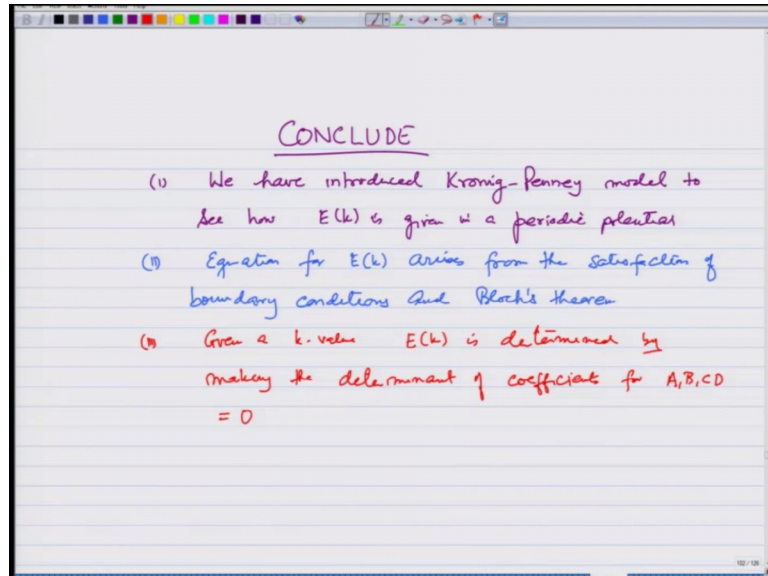 CONCLUDE
(I) We have introduced Kronig-Penney model to
See how E(k) is given in a periodic potential
(II) Equation for E(k) arises from the satisfaction of
boundary conditions and Bloch's theorem
(III) Given a k-value E(k) is determined by
making the determinant of coefficients for A,B,CD
= 0
102 / 126